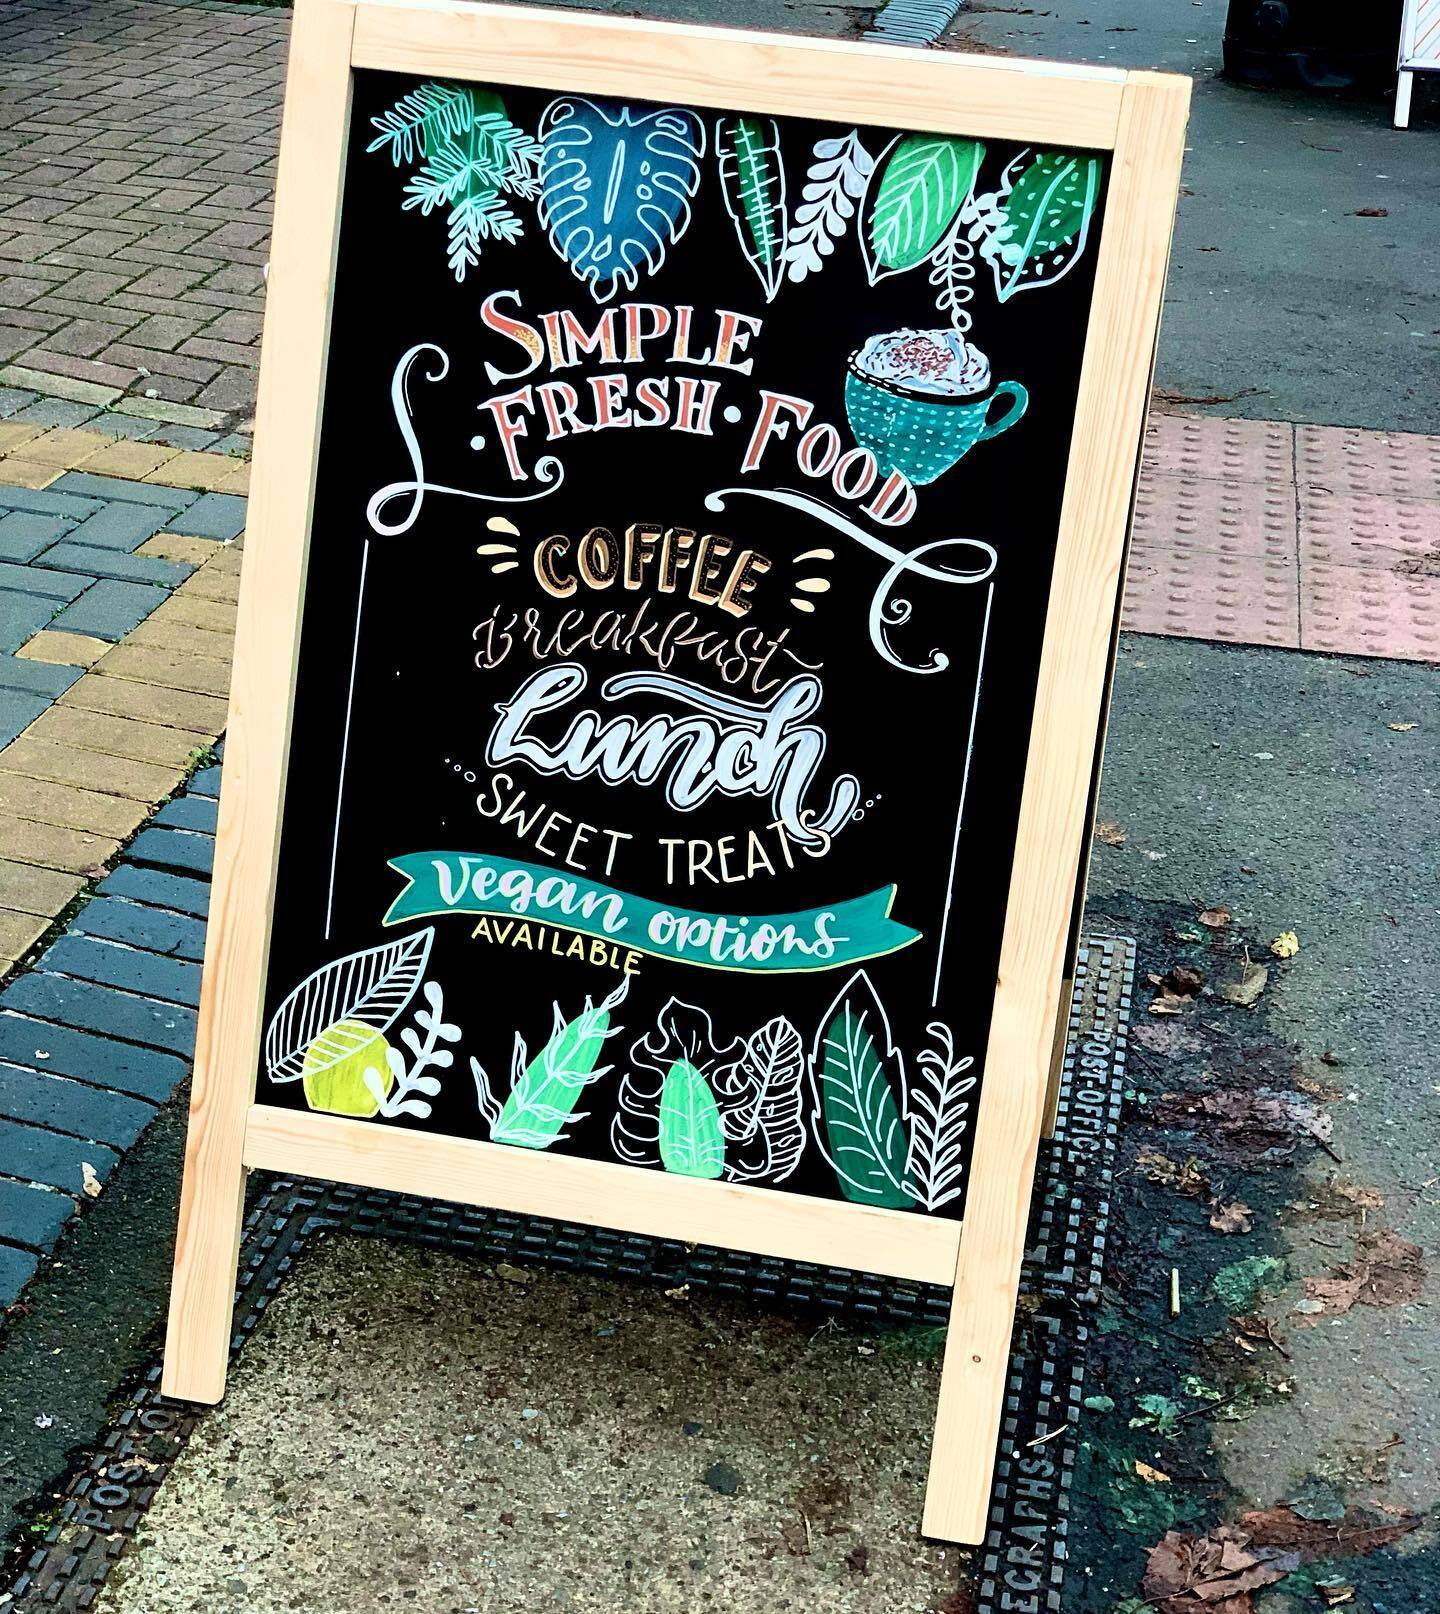 SIMPLE
FRESH · FOOD
COFFEE
Breakfast
Lunch
SWEET TREATS
Vegan options
AVAILABLE
POST OFFICE
POS
EGRAPHS